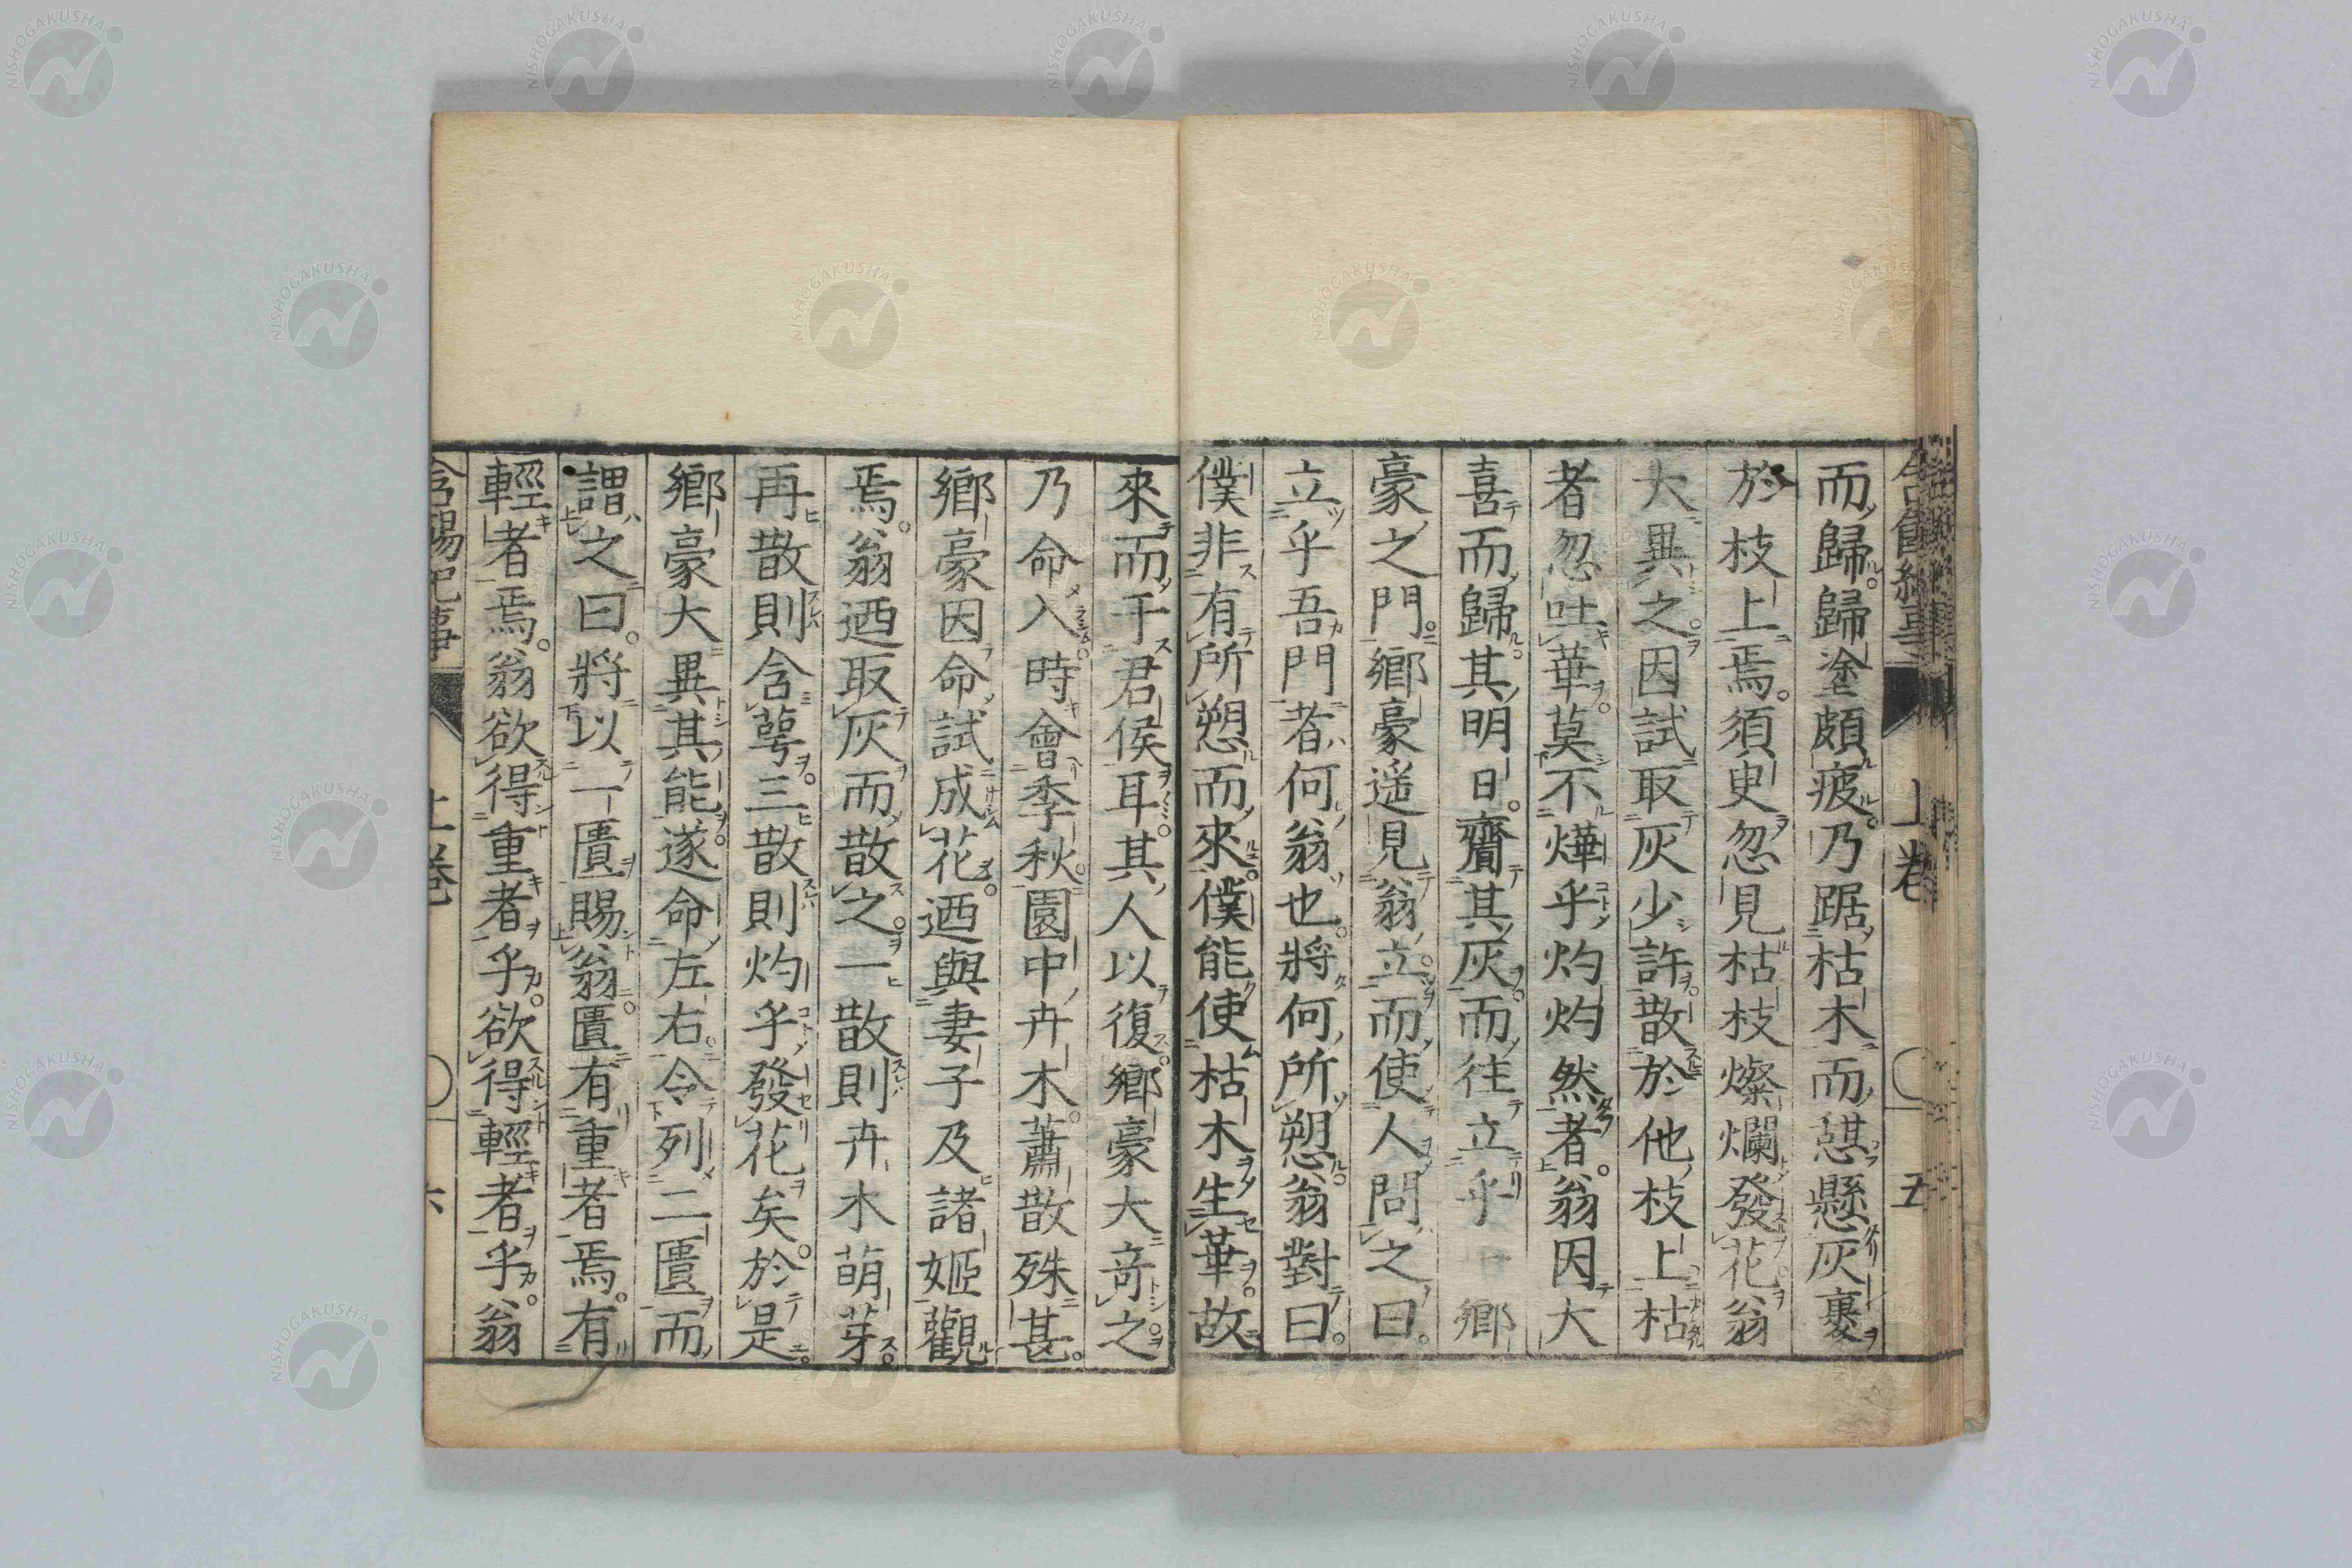 而歸歸塗頗疲乃踞枯木而憇懸灰裹
於枝上焉須臾忽見枯枝燦爛發花翁
大異之因試取灰少許散於他枝上枯
者忽吐華莫不燁乎灼灼然者翁因大
喜而歸其明日齎其灰而往立乎鄉
豪之門鄉豪遥見翁立而使人問之曰
立乎吾門者何翁也將何所愬翁對曰
僕非有所愬而來僕能使枯木生華故
來而干君侯耳其人以復鄉豪大竒之
乃命入時會季秋園中卉木蕭散殊甚
鄉豪因命試成花迺與妻子及諸姬觀
焉翁迺取灰而散之一散則卉木萌芽
再散則含萼三散則灼乎發花矣於是
鄉豪大異其能遂命左右令列二匱而
謂之曰將以一匱賜翁匱有重者焉有
輕者焉翁欲得重者乎欲得輕者乎翁
上卷
五
含餳紀事
上卷
六
NISHOGAKUSHA